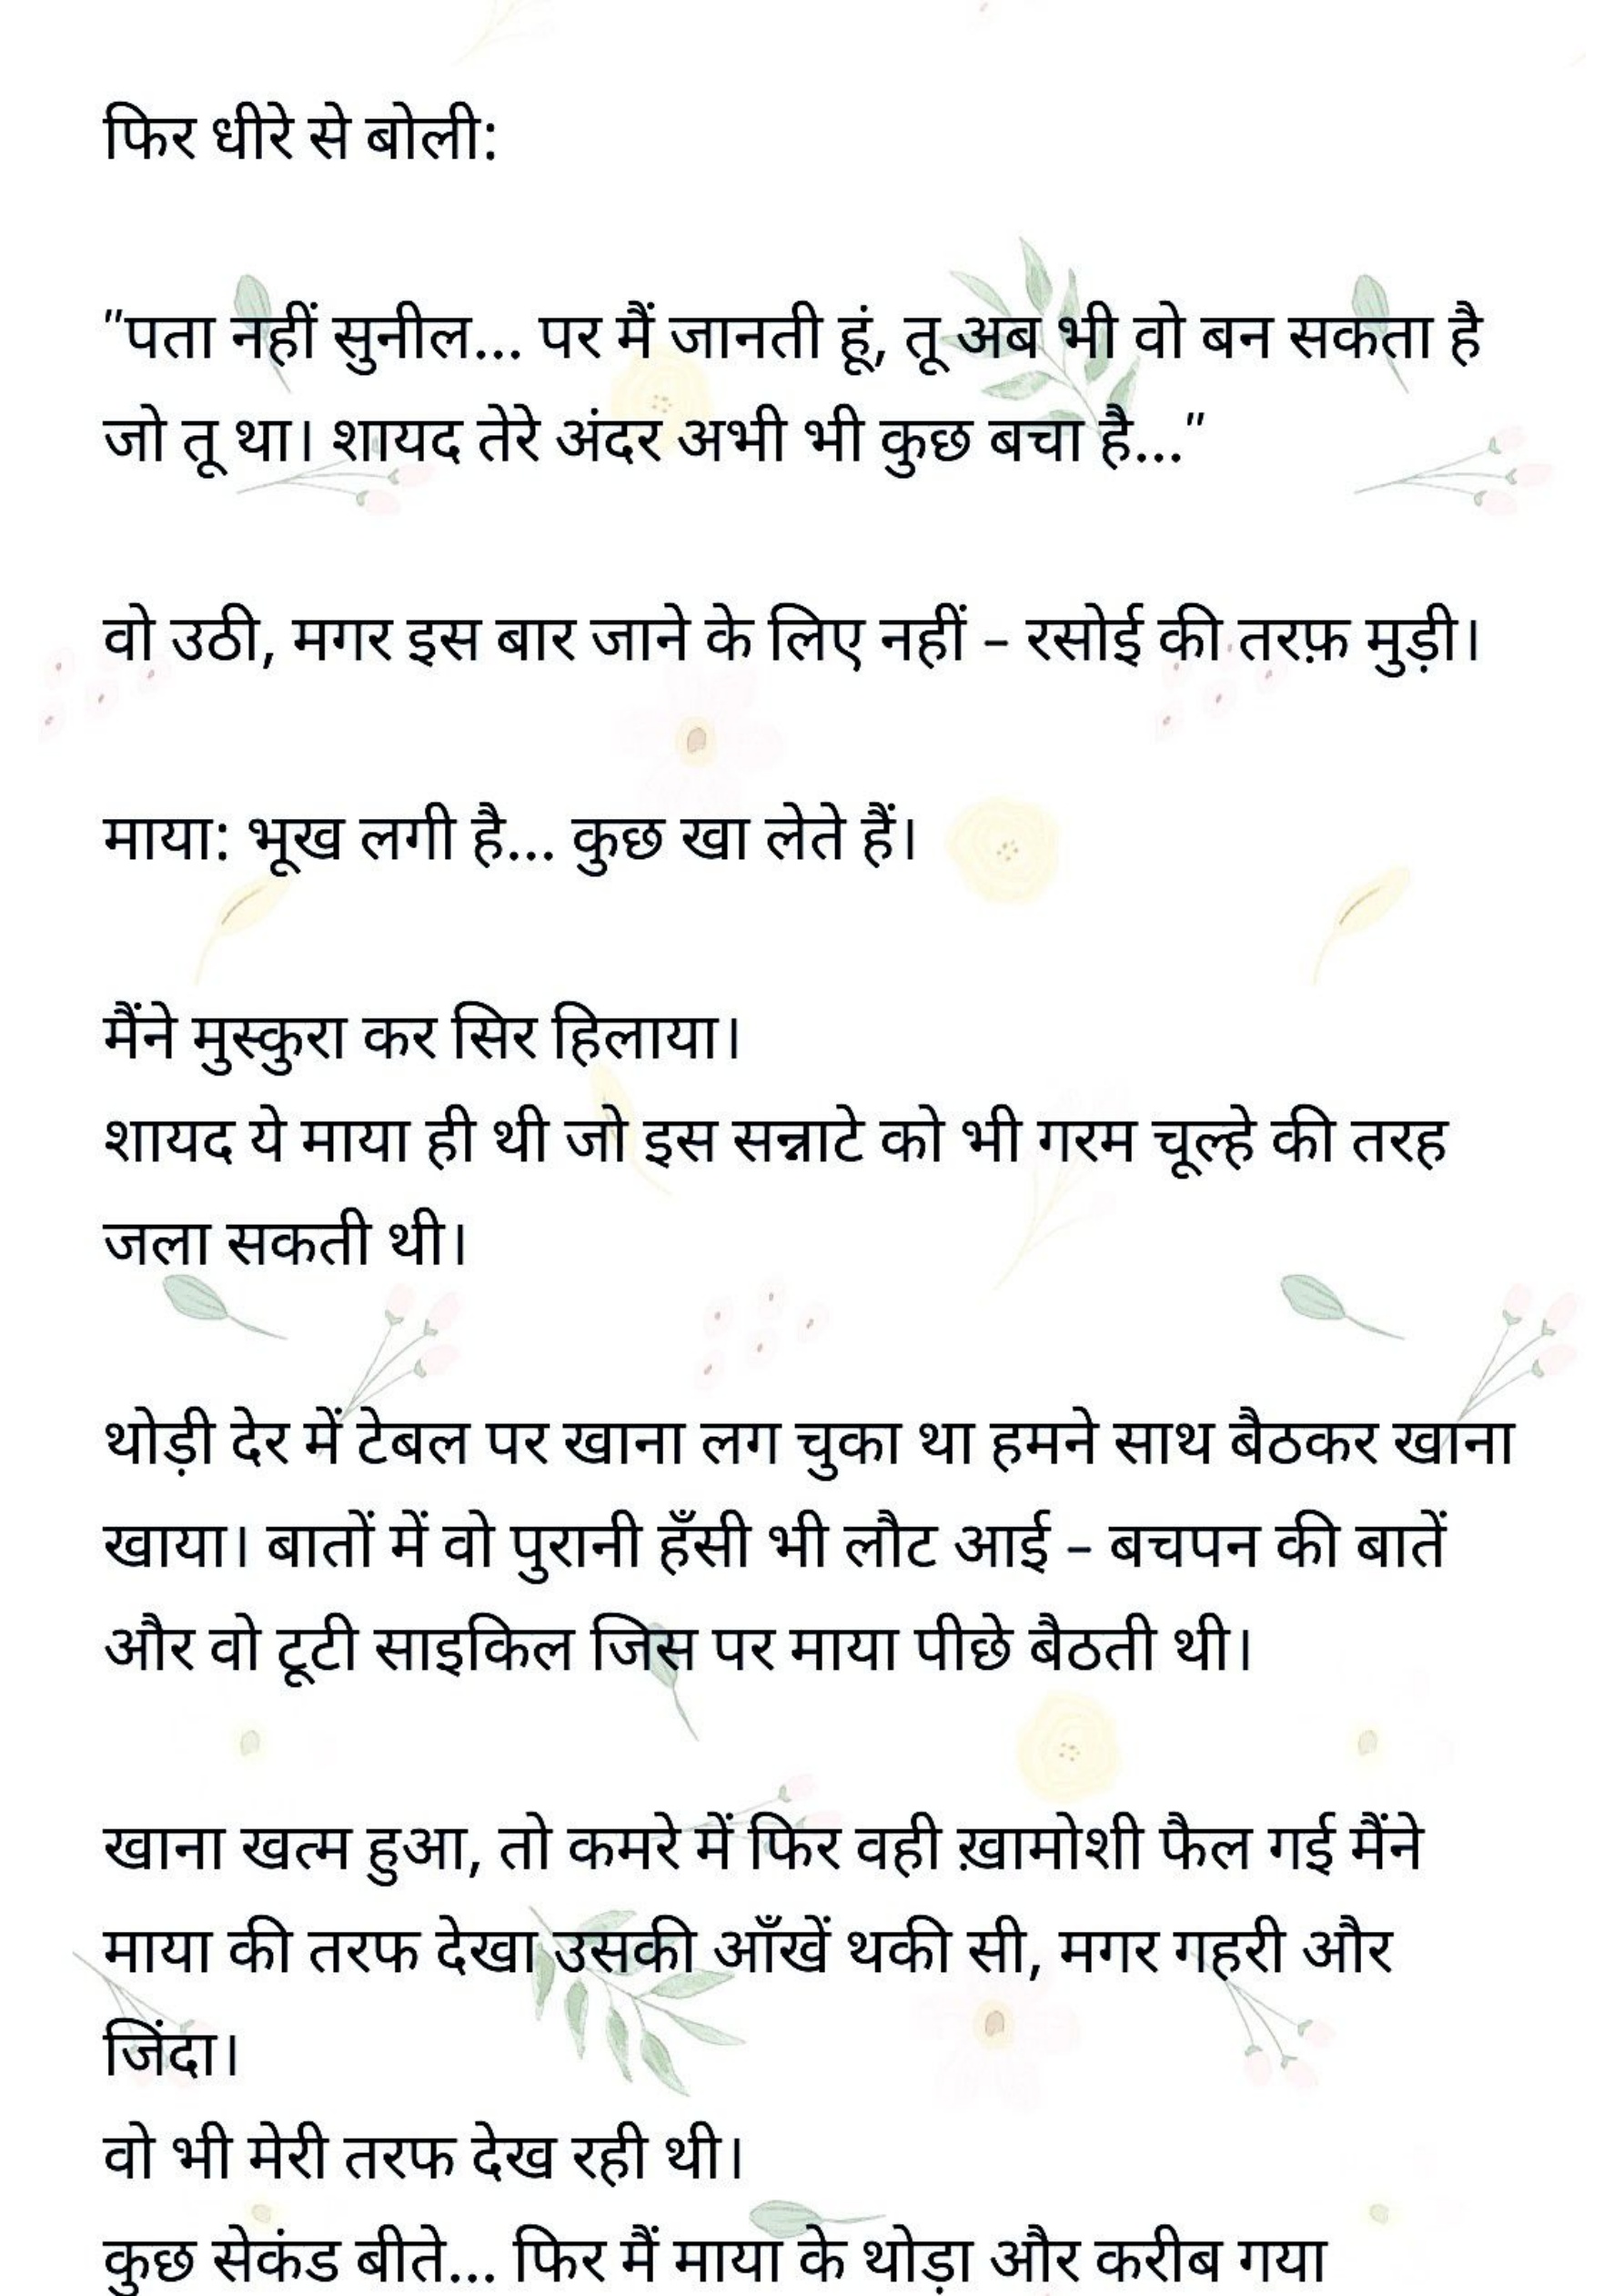 फिर धीरे से बोली:
"पता नहीं सुनील... पर मैं जानती हूं, तू अब भी वो बन सकता है
जो तू था। शायद तेरे अंदर अभी भी कुछ बचा है..."
वो उठी, मगर इस बार जाने के लिए नहीं – रसोई की तरफ़ मुड़ी।
माया: भूख लगी है... कुछ खा लेते हैं।
मैंने मुस्कुरा कर सिर हिलाया।
शायद ये माया ही थी जो इस सन्नाटे को भी गरम चूल्हे की तरह
जला सकती थी।
थोड़ी देर में टेबल पर खाना लग चुका था हमने साथ बैठकर खाना
खाया। बातों में वो पुरानी हँसी भी लौट आई – बचपन की बातें
और वो टूटी साइकिल जिस पर माया पीछे बैठती थी।
खाना खत्म हुआ, तो कमरे में फिर वही ख़ामोशी फैल गई मैंने
माया की तरफ देखा उसकी आँखें थकी सी, मगर गहरी और
जिंदा।
वो भी मेरी तरफ देख रही थी।
कुछ सेकंड बीते... फिर मैं माया के थोड़ा और करीब गया